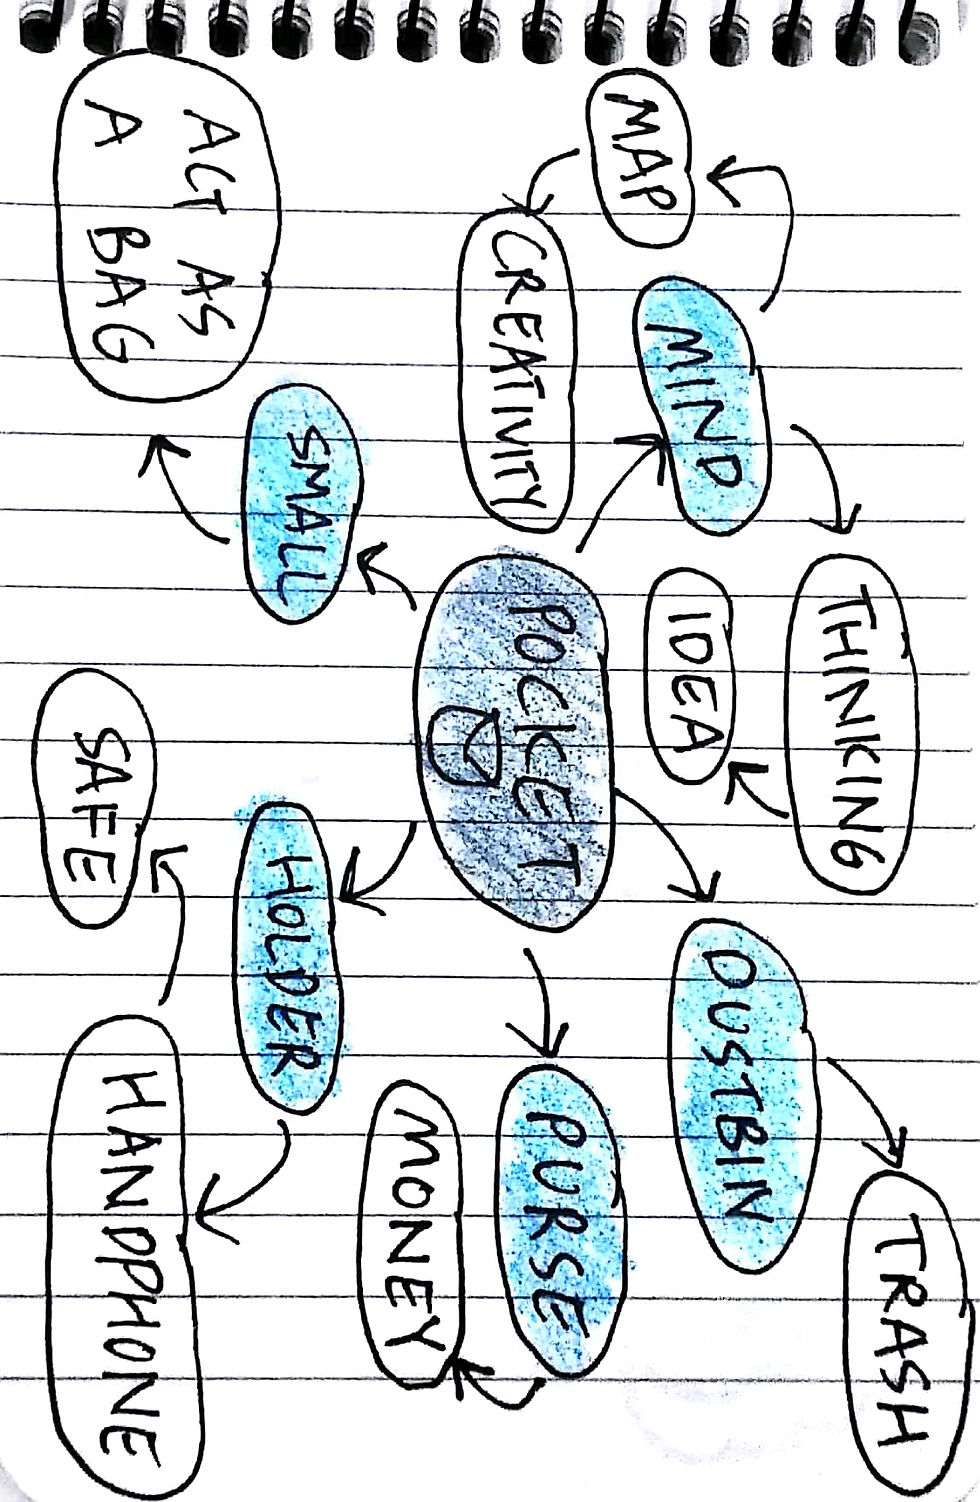 THINKING
TRASH
MIND
DUSTBIN
MAP
IDEA
CREATIVITY
POCKET
PURSE
MONEY
SMALL
HOLDER
ACT AS
A BAG
SAFE
HANDPHONE